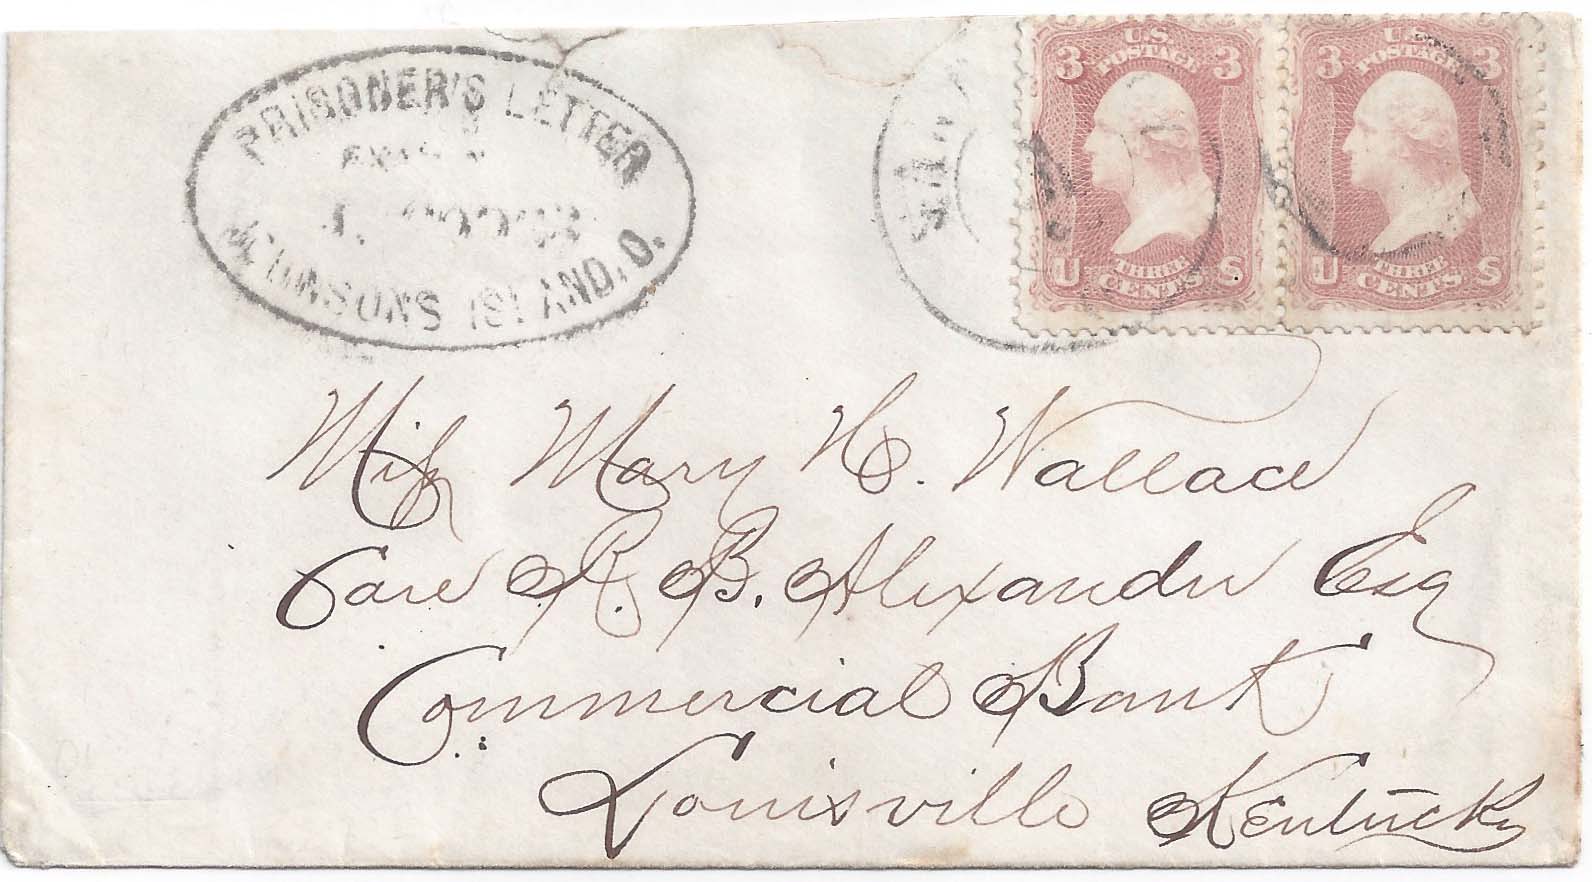 PRISONER'S LETTER
JOHNSONS ISLAND, O.
3 U.S. POSTAGE 3
U THREE CENTS S
3 U.S. POSTAGE 3
U THREE CENTS S
Miss Mary H. Wallace
Care A. B. Alexander Esq
Commercial Bank
Louisville Kentucky